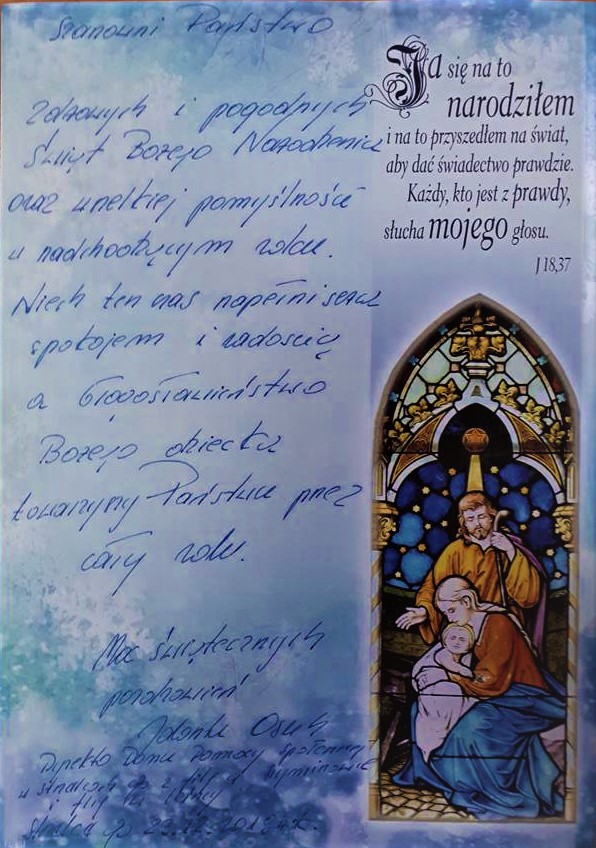 Szanowni Państwo
Zdrowych i pogodnych
Świąt Bożego Narodzenia
oraz wielkiej pomyślności
w nadchodzącym roku.
Niech ten czas napełni serca
spokojem i radością
a błogosławieństwo
Bożego dziecka
towarzyszy Państwu przez
cały rok.
Moc świątecznych
pozdrowień
Dyrektor Domu Pomocy Społecznej
Ja się na to
narodziłem
i na to przyszedłem na świat,
aby dać świadectwo prawdzie.
Każdy, kto jest z prawdy,
słucha mojego głosu.
J 18,37